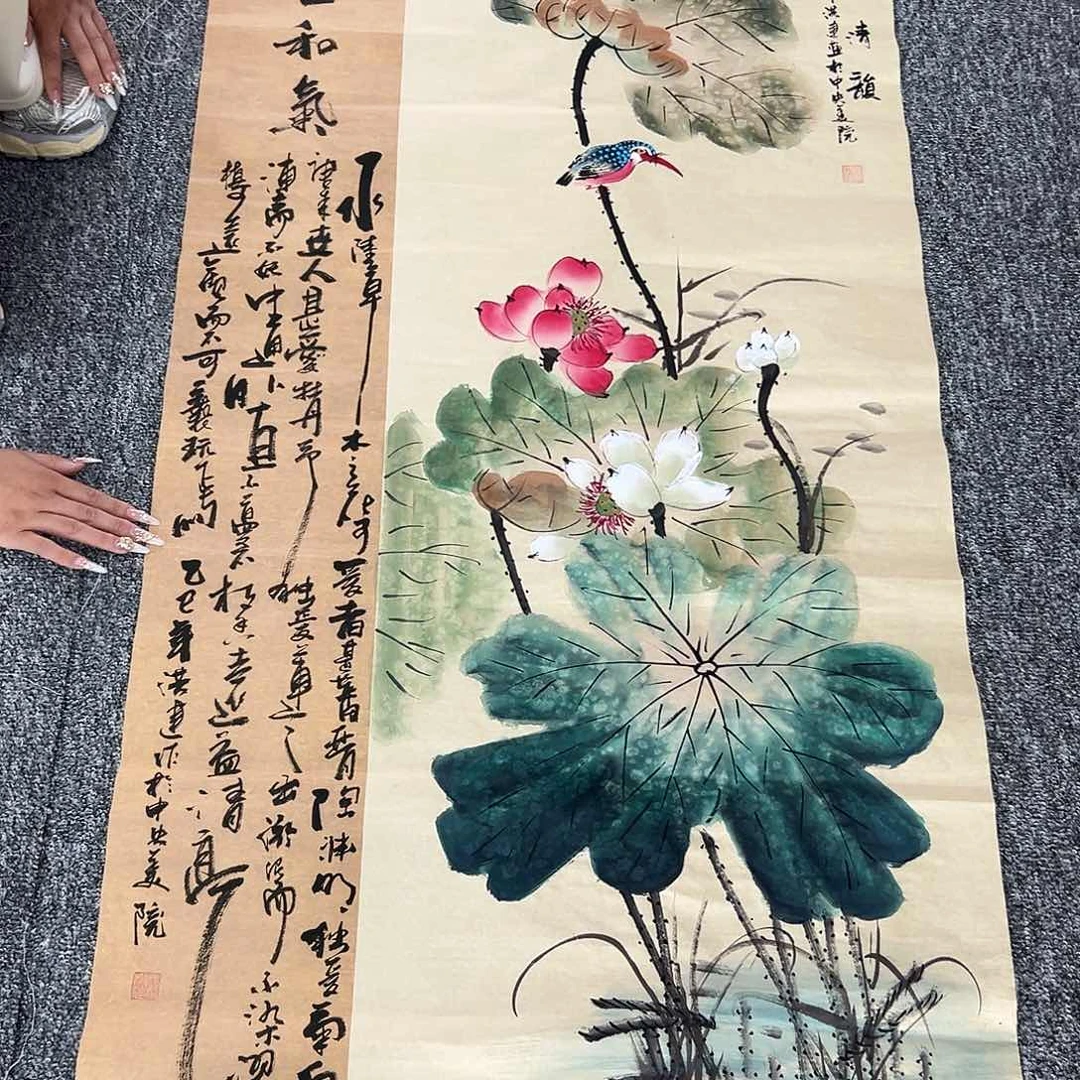 清韻
洪建畫於中央美院
和氣
水陸草木之花可愛者甚蕃晉陶淵明獨愛菊自
唐来世人甚愛牡丹予獨愛蓮之出淤泥而不染濯
清漣而不妖中通外直不蔓不枝香遠益清亭
植遠觀而不可褻玩焉
乙巳年洪建作於中央美院